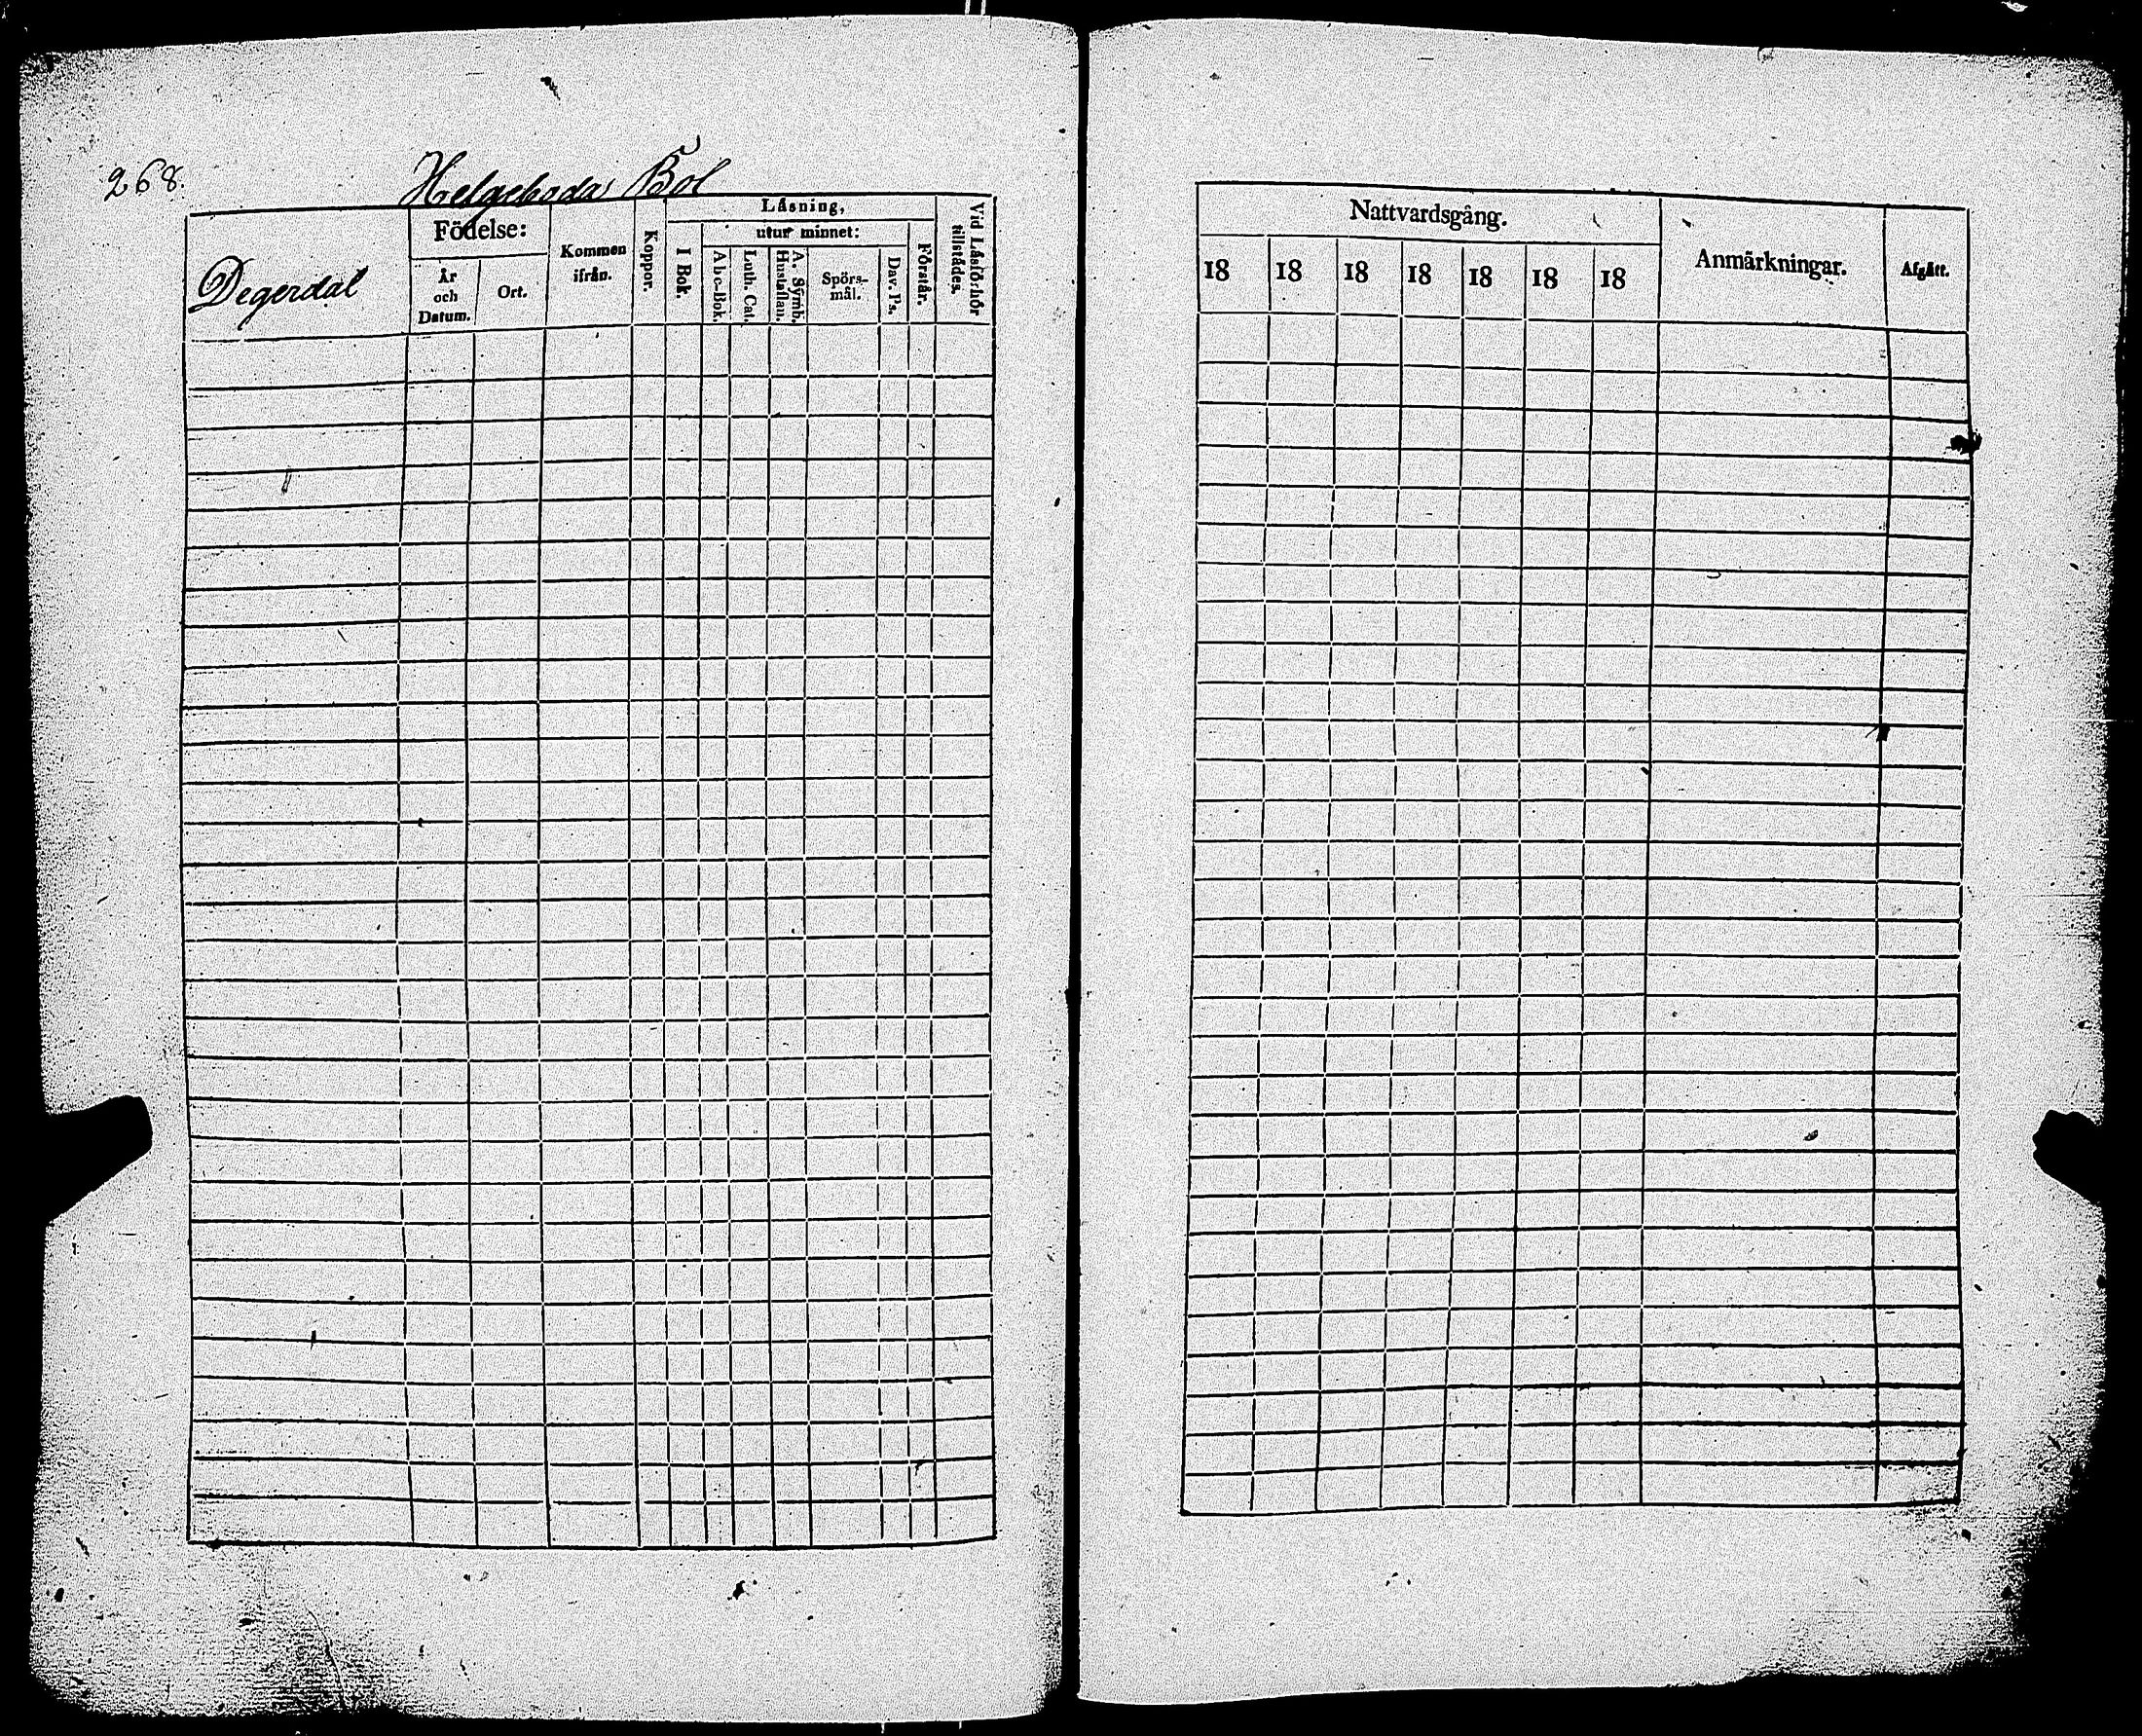 268.
Helgeboda Bol
Degerdal
Födelse:
År
och
Datum.
Ort.
Kommen
ifrån.
Koppor.
Läsning,
I Bok.
utur minnet:
Abc-Bok.
Luth. Cat.
A. Symb.
Hustaflan.
Spörs-
mål.
Dav. Ps.
Förstår.
Vid Läsförhör
tillstädes.
Nattvardsgång.
18 18 18 18 18 18 18
Anmärkningar.
Afgått.